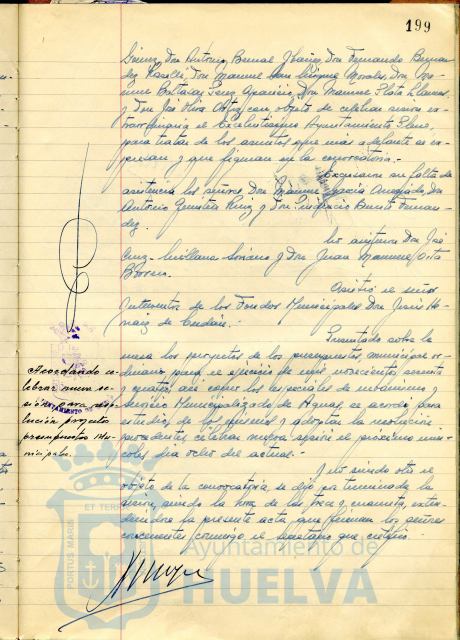 199
Gómez, Don Antonio Bernal Ybáñez, Don Fernando Bernar-
dez Roselló, Don Manuel San Miguel Morales, Don
Baltasar Pérez Aparicio, Don Manuel Plata Llanes
y Don José Oliva con objeto de celebrar sesión ex-
traordinaria el Excelentísimo Ayuntamiento Pleno,
para tratar de los asuntos que más adelante se ex-
presan y que figuran en la convocatoria.-
Excusaron su falta de
asistencia los señores, Don Manuel García Don
Antonio Ruiz y Don Burit Fernan-
dez.
No asistieron Don José
Cruz Soriano y Don Juan Manuel
Borrero.
Asistió el señor
Interventor de los Fondos Municipales Don Jesús
de Cerdán.-
Presentado sobre la
mesa los proyectos de los presupuestos, municipal or-
dinario para el ejercicio de mil novecientos sesenta
y cuatro, así como los especiales de urbanismo y
Servicio Municipalizado de Aguas, se acordó para
estudio de los mismos y adoptar la resolución
procedente celebrar nueva sesión el próximo miér-
coles día ocho del actual.-
Acordando ce-
lebrar nueva se-
sión para reso-
lución proyectos
presupuestos Mu-
nicipales.
Y no siendo otro el
objeto de la convocatoria, se dió por terminada la
sesión, siendo la hora de las trece y cuarenta, exten-
diéndose la presente acta que firman los señores
concurrentes conmigo el Secretario que certifico.-
PORTUS MARIS ET TERRÆ
Ayuntamiento de
HUELVA